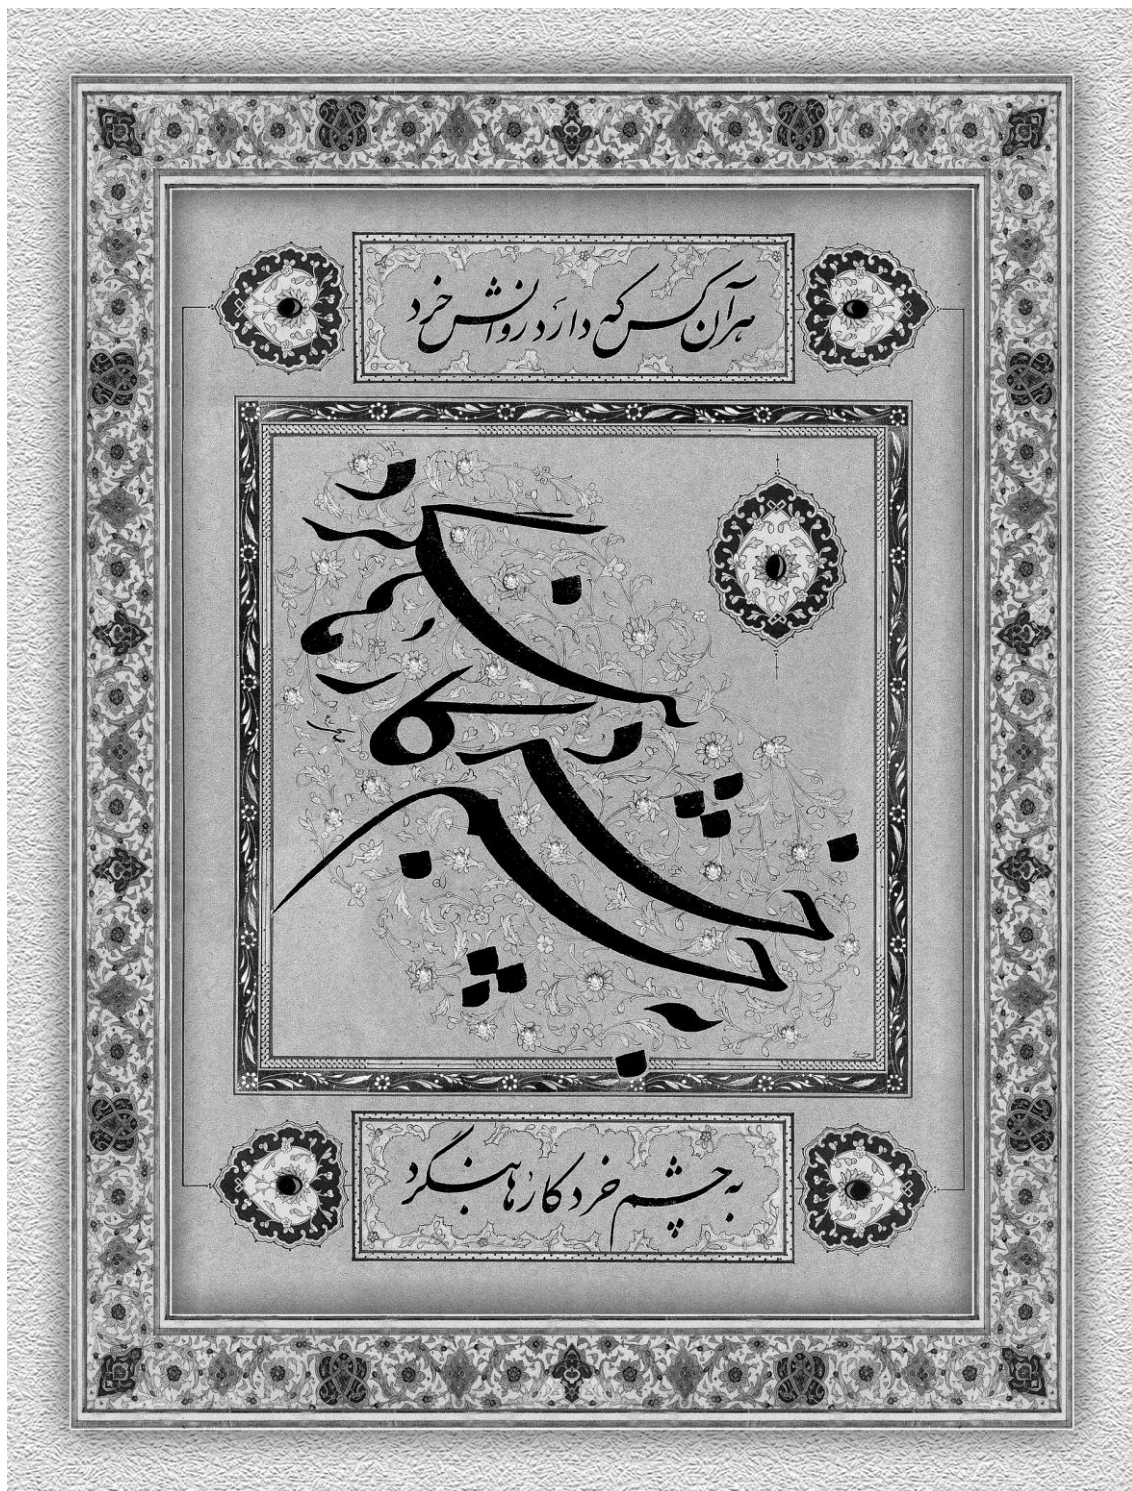 هر آن کس که دارد روانش خرد
به چشم خرد کارها بنگرد
به چشم خرد کارها بنگرد